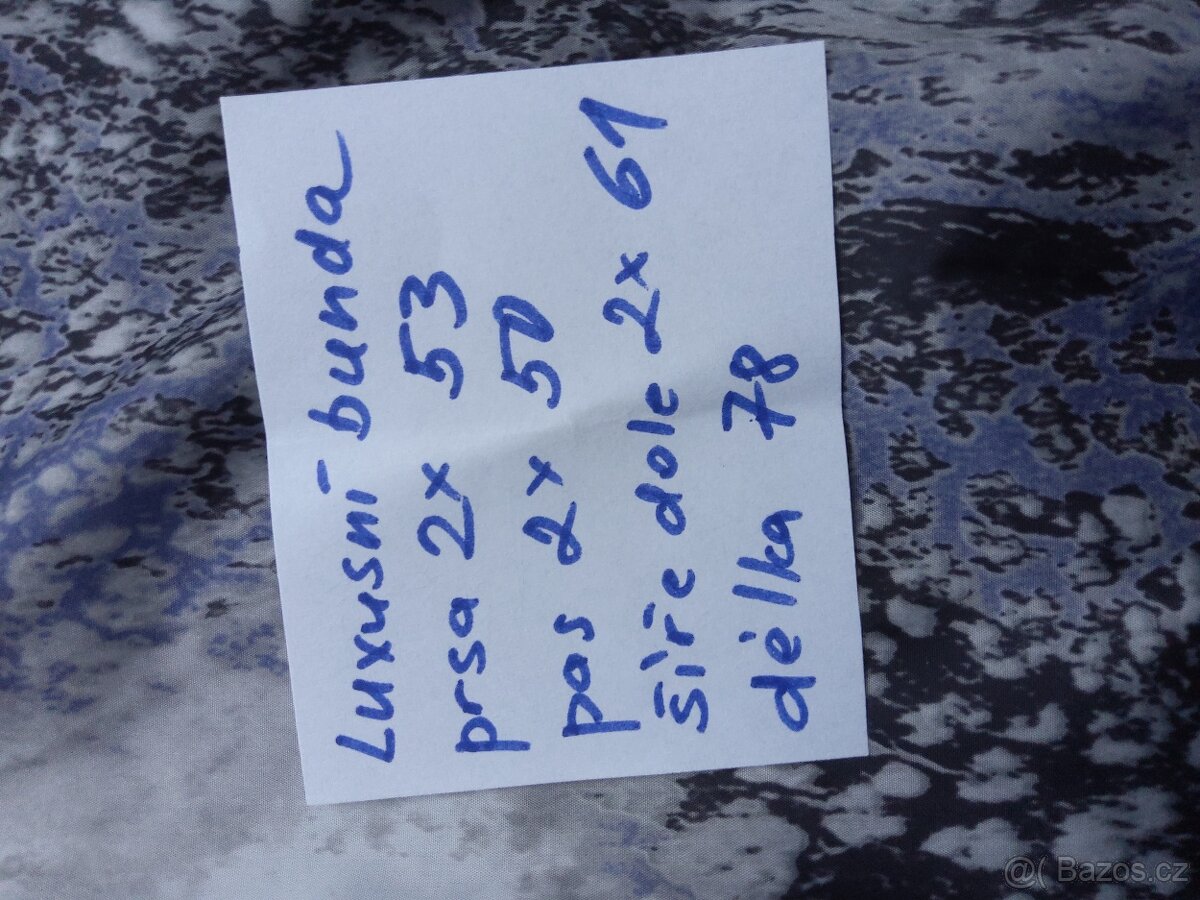 Luxusní bunda
prsa 2x 53
pas 2x 50
šíře dole 2x 61
délka 78
@( Bazos.cz